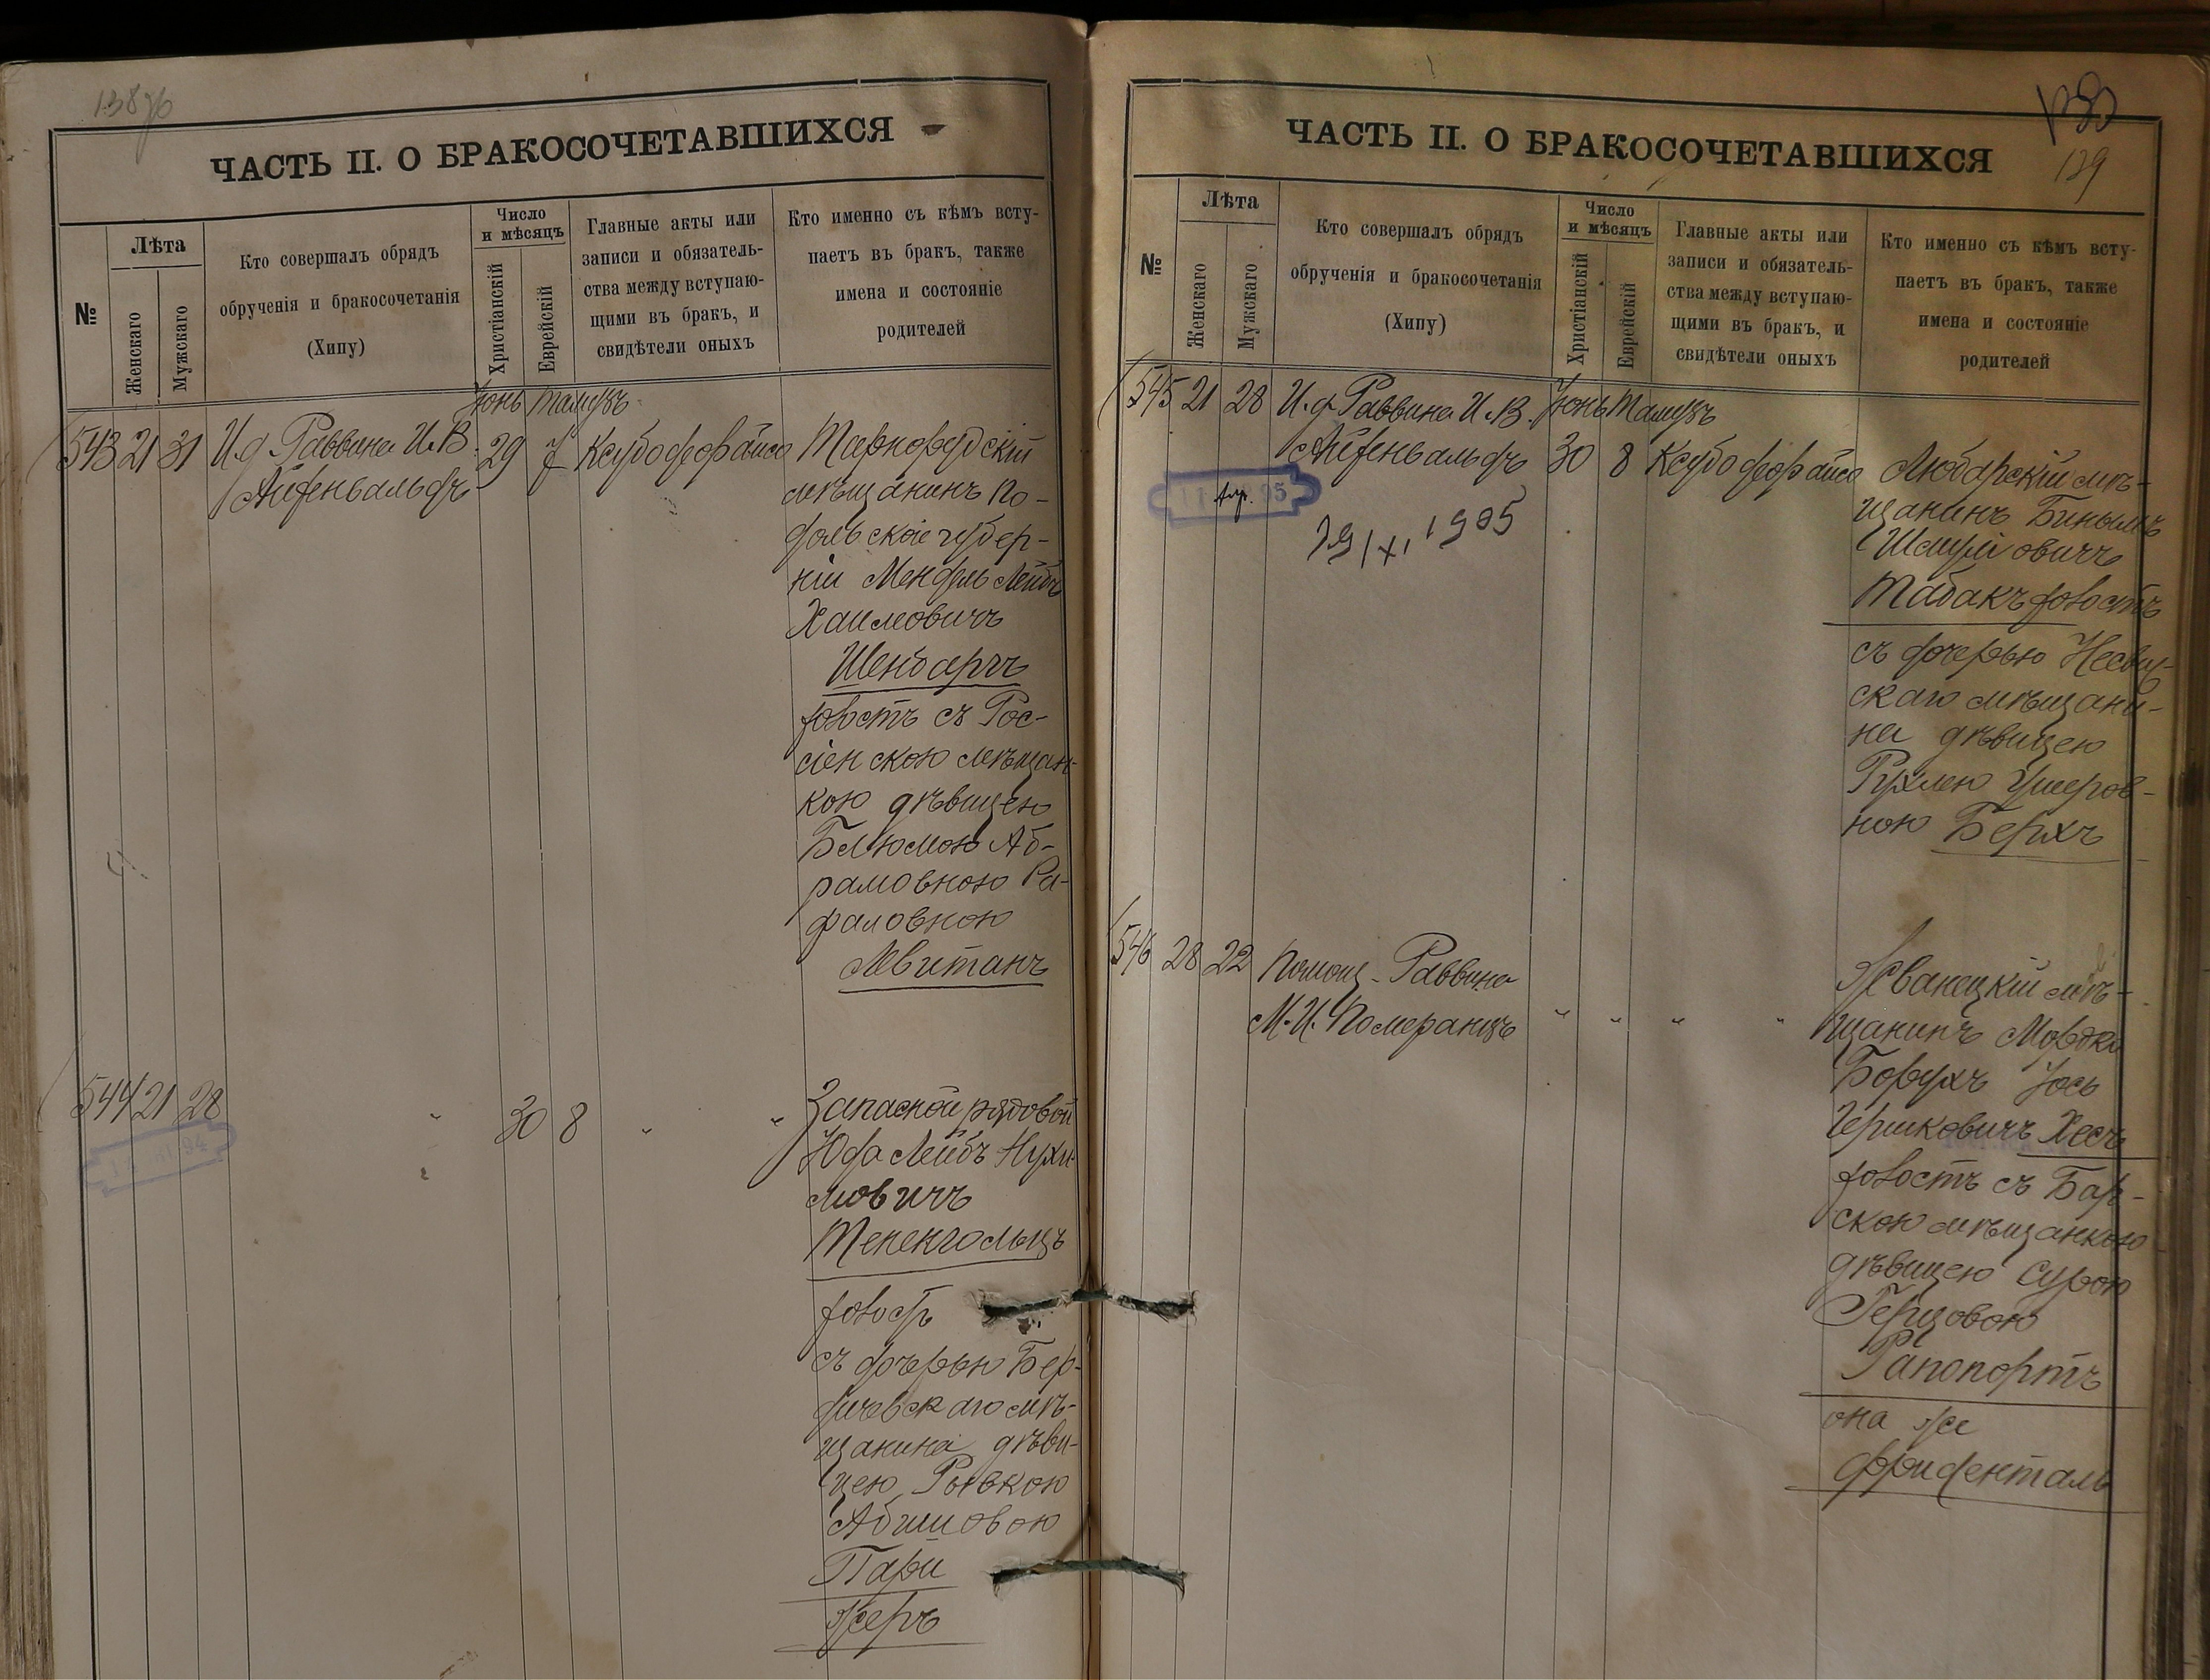 138 об
ЧАСТЬ II. О БРАКОСОЧЕТАВШИХСЯ
№
Лѣта
Женскаго
Мужскаго
Кто совершалъ обрядъ
обрученія и бракосочетанія
(Хипу)
Число
и мѣсяцъ
Христіанскій
Еврейскій
Главные акты или
записи и обязатель-
ства между вступаю-
щими въ бракъ, и
свидѣтели оныхъ
Кто именно съ кѣмъ всту-
паетъ въ бракъ, также
имена и состояніе
родителей
Іюнь Тамузъ
543 21 31 И.д. Раввина И.В. 29 7
Айзенвальдъ
мѣщанинъ По-
дольскіе губер-
ніи Мендель Лейбъ
Хаимовичъ
Шенбаръ
холостъ съ Рос-
сіенскою мѣщан-
кою дѣвицею
Блюмою Аб-
рамовною Ра-
фаловною
Левитанъ
544 21 28 " 30 8 " " Запасной рядовой
Юда Лейбъ Нухи-
мовичъ
Тененгольцъ
холостъ
съ дочерью Бер-
дичевскаго мѣ-
щанина дѣви-
цею Рывкою
Абшиовою
Пари
жеръ
139
ЧАСТЬ II. О БРАКОСОЧЕТАВШИХСЯ
139
№
Лѣта
Женскаго
Мужскаго
Кто совершалъ обрядъ
обрученія и бракосочетанія
(Хипу)
Число
и мѣсяцъ
Христіанскій
Еврейскій
Главные акты или
записи и обязатель-
ства между вступаю-
щими въ бракъ, и
свидѣтели оныхъ
Кто именно съ кѣмъ всту-
паетъ въ бракъ, также
имена и состояніе
родителей
545 21 28 И.д. Раввина И.В. Іюнь Тамузъ
Айзенвальдъ 30 8
Любарскій мѣ-
щанинъ Биньминъ
Шмулiовичъ
Табакъ холостъ
съ дочерью Несвиж-
скаго мѣщани-
на дѣвицею
Рухлею Ушеров-
ною Берхъ
Апр.
29/XI 1905
546 28 22 Помощ. Раввина
М. И. Померанцъ " " " "
Жванецкій мѣ-
щанинъ Мордко
Борухъ Іось
Гершковичъ Хесъ
холостъ съ Бар-
скою мѣщанкою
дѣвицею Сурою
Герцовою
Рапопортъ
она же
Фриденталь